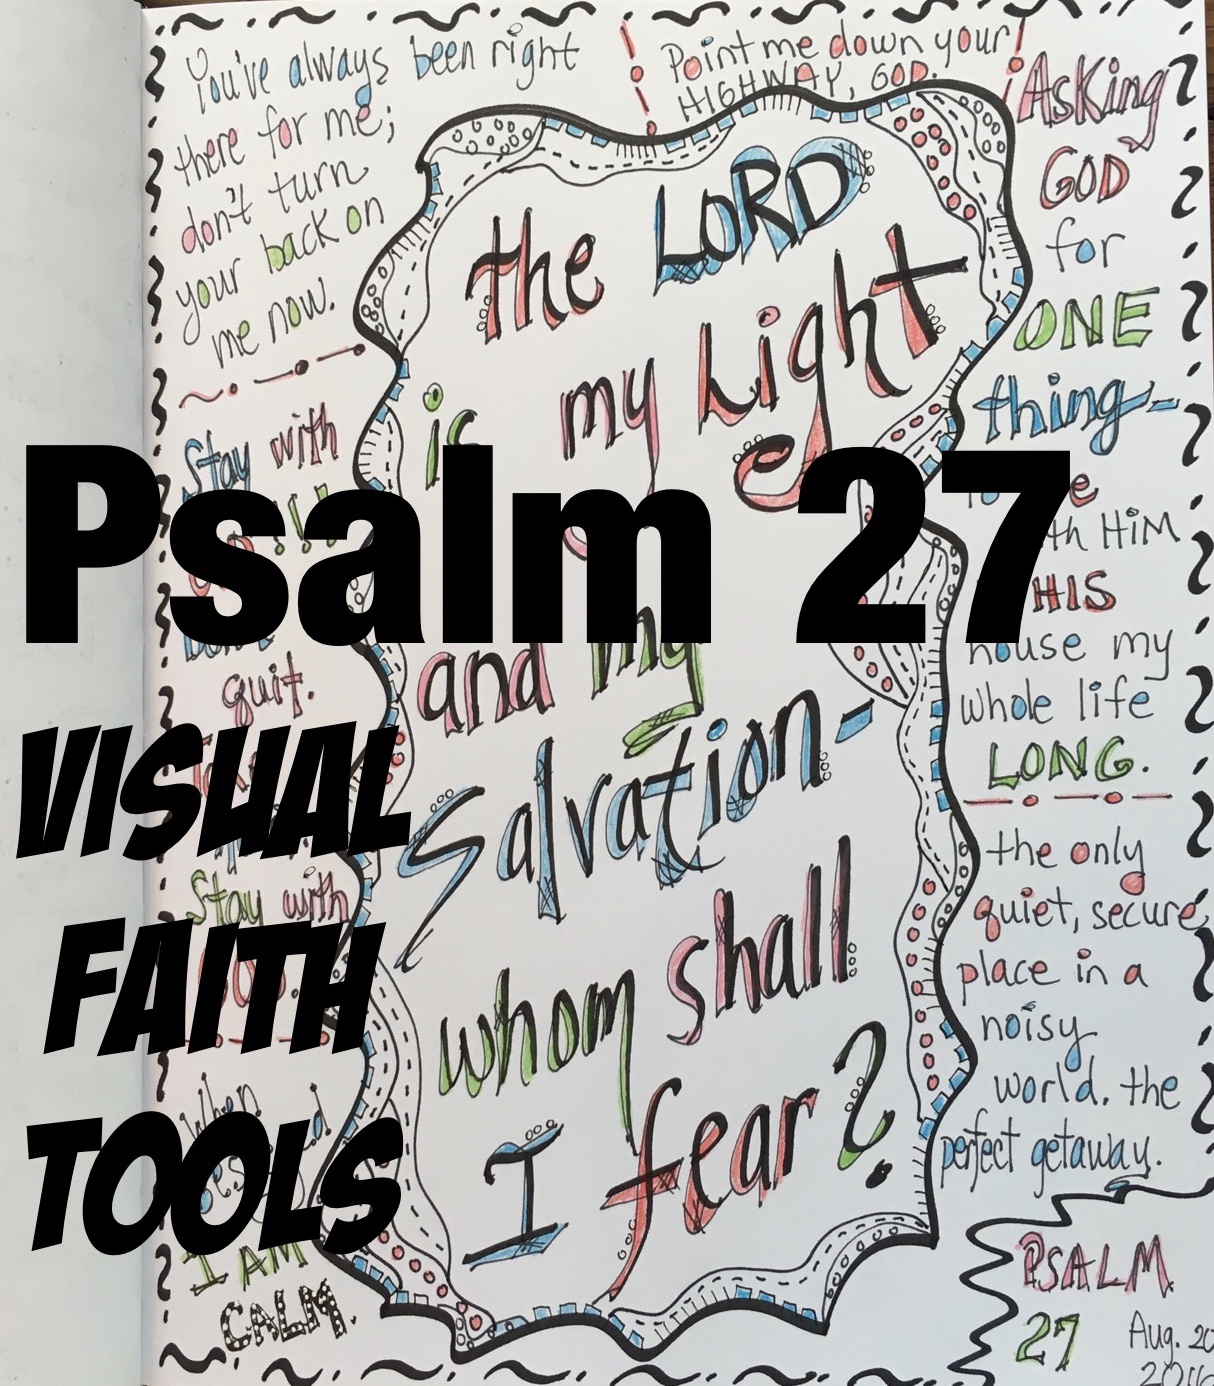 You've always been right
there for me;
don't turn
your back on
me now.
Point me down your
HIGHWAY, GOD.
Stay with
quit.
Stay with
When
I AM
CALM.
the LORD
is my Light
and my
Salvation-
whom shall
I fear?
Asking
GOD
for
ONE
thing-
HIM
HIS
house my
whole life
LONG.
the only
quiet, secure
place in a
noisy
world. the
perfect getaway.
PSALM
27
Aug. 20
2016
Psalm 27
VISUAL
FAITH
TOOLS